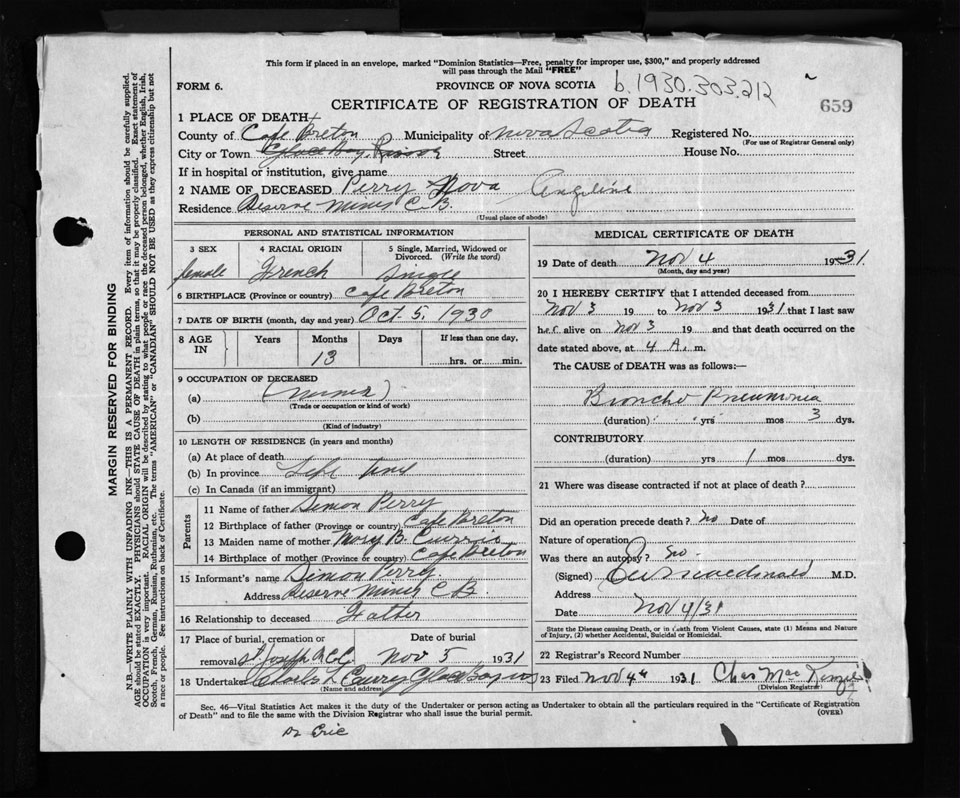 This form if placed in an envelope, marked "Dominion Statistics—Free, penalty for improper use, $300," and properly addressed
will pass through the Mail "FREE"
FORM 6.
PROVINCE OF NOVA SCOTIA
b.1930.303.212
CERTIFICATE OF REGISTRATION OF DEATH
659
1 PLACE OF DEATH
County of Cape Breton Municipality of Nova Scotia Registered No.
(For use of Registrar General only)
City or Town Glace Bay Street House No.
If in hospital or institution, give name
2 NAME OF DECEASED Perry Nova Angeline
Residence Reserve Mines C.B.
(Usual place of abode)
PERSONAL AND STATISTICAL INFORMATION
3 SEX 4 RACIAL ORIGIN 5 Single, Married, Widowed or
Divorced. (Write the word)
female French Single
6 BIRTHPLACE (Province or country) Cape Breton
7 DATE OF BIRTH (month, day and year) Oct 5, 1930
8 AGE IN Years Months Days If less than one day,
13 hrs. or min.
9 OCCUPATION OF DECEASED
(a) (Miner)
(Trade or occupation or kind of work)
(b)
(Kind of industry)
10 LENGTH OF RESIDENCE (in years and months)
(a) At place of death
(b) In province Life time
(c) In Canada (if an immigrant)
Parents
11 Name of father Simon Perry
12 Birthplace of father (Province or country) Cape Breton
13 Maiden name of mother Mary B. Currie
14 Birthplace of mother (Province or country) Cape Breton
15 Informant's name Simon Perry
Address Reserve Mines C B.
16 Relationship to deceased Father
17 Place of burial, cremation or Date of burial
removal St Joseph Nov 5 1931
18 Undertaker Curry Glace Bay
(Name and address)
MEDICAL CERTIFICATE OF DEATH
19 Date of death Nov 4 1931.
(Month, day and year)
20 I HEREBY CERTIFY that I attended deceased from
Nov 3 19 to Nov 3 1931 that I last saw
her alive on Nov 3 19 and that death occurred on the
date stated above, at 4 A. m.
The CAUSE of DEATH was as follows:—
Broncho Pneumonia
(duration) yrs mos 3 dys.
CONTRIBUTORY
(duration) yrs mos dys.
21 Where was disease contracted if not at place of death?
Did an operation precede death? no Date of
Nature of operation
Was there an autopsy? no.
(Signed) Macdonald M.D.
Address
Date Nov 4/31
State the Disease causing Death, or in death from Violent Causes, state (1) Means and Nature
of Injury, (2) whether Accidental, Suicidal or Homicidal.
22 Registrar's Record Number
23 Filed Nov 4th 1931 Chas Mac
(Division Registrar)
Sec. 46—Vital Statistics Act makes it the duty of the Undertaker or person acting as Undertaker to obtain all the particulars required in the "Certificate of Registration
of Death" and to file the same with the Division Registrar who shall issue the burial permit.
(OVER)
MARGIN RESERVED FOR BINDING
N.B.—WRITE PLAINLY WITH UNFADING INK—THIS IS A PERMANENT RECORD. Every item of information should be carefully supplied.
AGE should be stated EXACTLY. PHYSICIANS should STATE CAUSE OF DEATH in plain terms, so that it may be properly classified. Exact statement of
OCCUPATION is very important. RACIAL ORIGIN will be described by stating to what people or race the deceased person belonged, whether English, Irish,
Scotch, French, German, Russian, Ruthenian, etc. The terms "AMERICAN" or "CANADIAN" SHOULD NOT BE USED as they express citizenship but not
a race or people. See instructions on back of Certificate.